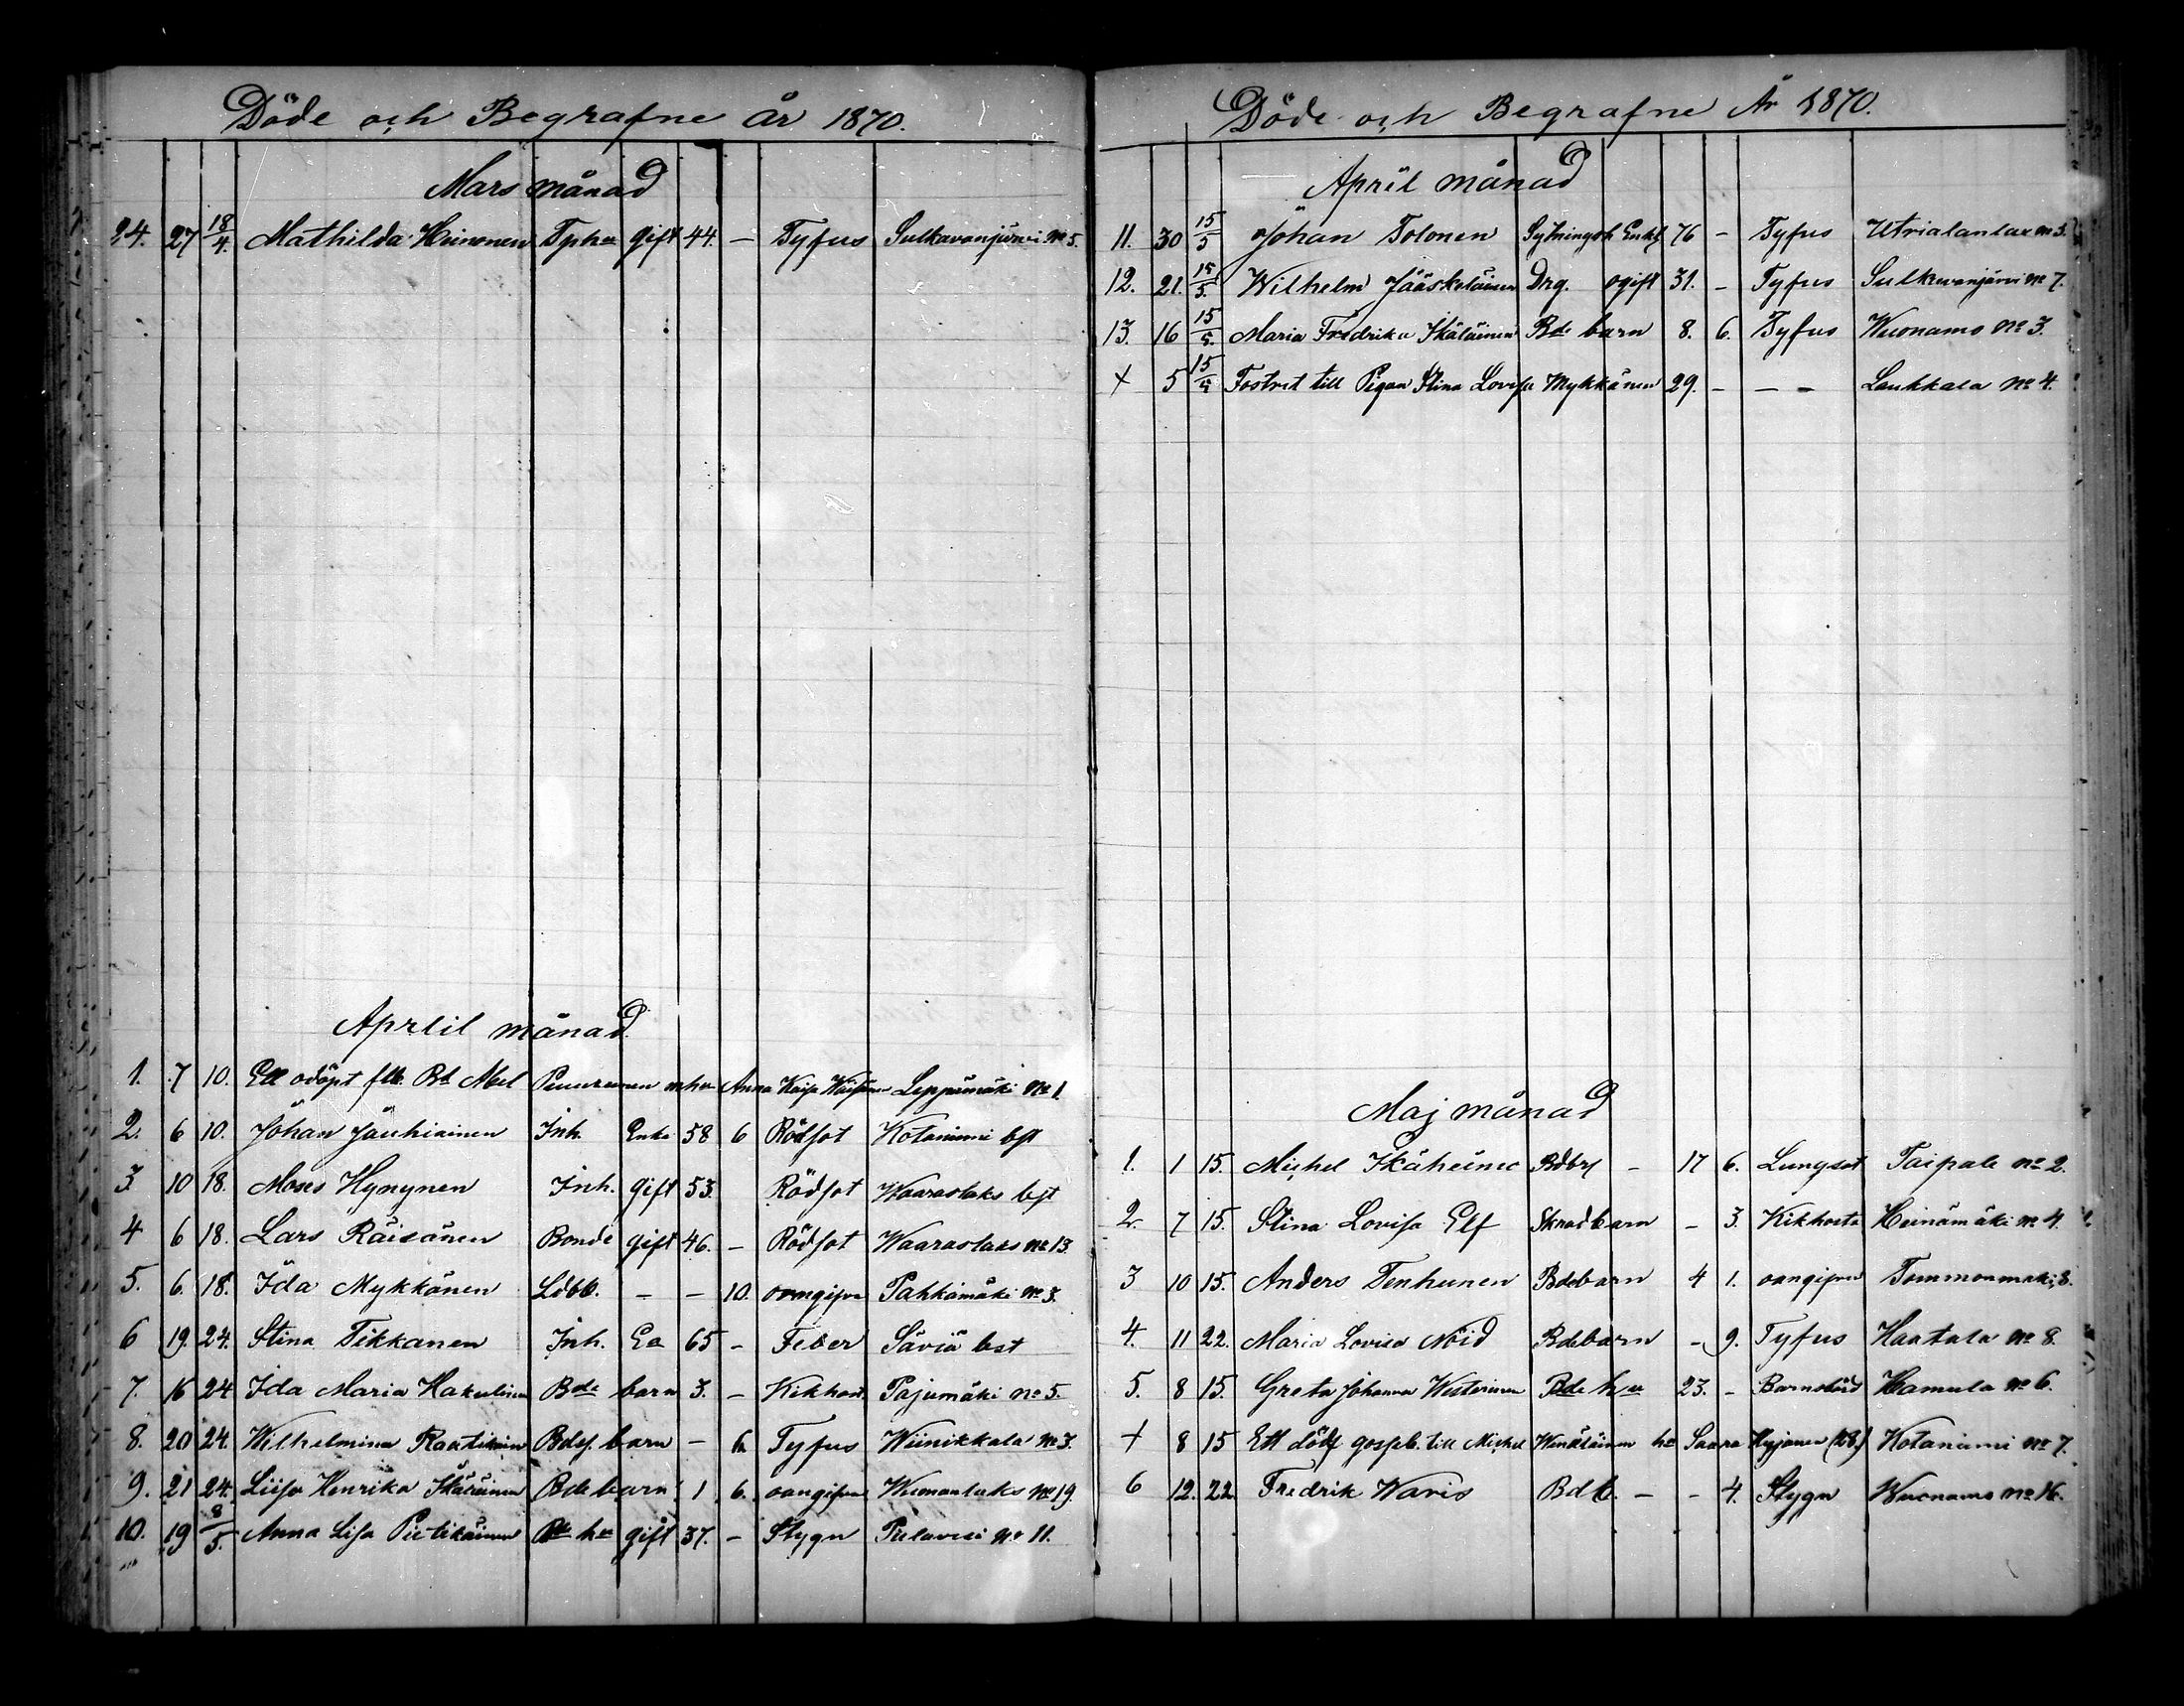 Döde och Begrafne år 1870.
Mars månad
24. 27 18/4. Mathilda Heinonen Tpha gift 44. - Tyfus Sulkavanjärvi No 5.
Aprlil månad.
1. 7 10. Ett odöpt Bd Abel Anna Kaisa Leppämäki No 1.
2. 6 10. Johan Jauhiainen Inh. Enkl 58 6 Rödsot Kotaniemi bst
3. 10 18. Moses Hynynen Inh. gift 53. Rödsot Waaraslaks bst
4 6 18. Lars Räisänen Bonde gift 46. - Rödsot Waaraslaks No 13.
5. 6. 18. Ida Mykkänen - - 10. oangifven Pahkamäki No 3.
6 19. 24. Stina Tikkanen Inh. Ea 65 - Feber Säviä bst
7. 16 24 Ida Maria Hakulinen Bde barn 3. - Kikhost. Pajumäki No 5.
8. 20 24. Wilhelmina Raatikain Bdsf. barn - 6. Tyfus Wiinikkala No 3.
9. 21 24. Liisa Henrika Ikäläinen Bde barn 1 6. oangifven Wuonanlaks No 19.
10. 19 8/5. Anna Lisa Pietikäinen Bde hu gift 37. - Stygn Pielavesi No 11.
Döde och Begrafne År 1870.
April månad
11. 30 15/5 Johan Tolonen Sytningsk Enkl 76 - Tyfus Utrialanlax No 3.
12. 21. 15/5. Wilhelm Jääskeläinen Drg. ogift 31. - Tyfus Sulkavanjärvi No 7.
13. 16 15/5. Maria Fredrika Ikäläinen Bde barn 8. 6. Tyfus Wuonamo No 3.
+ 5 15/5 Fostret till Pigan Stina Lovisa Mykkänen 29. - - - Laukkala No 4.
Maj månad
1. 1 15. Michel Ikäheimo - 17 6. Lungsot Taipale No 2.
2. 7 15. Stina Lovisa Elf Skradbarn - 3. Kikhosta Heinämäki No 4.
3 10 15. Anders Tenhunen Bdebarn 4 1. oangifven Tommonmäki 8.
4. 11 22. Maria Lovisa Nöid Bdebarn - 9. Tyfus Haatala No 8.
5. 8 15. Greta Johanna Westerinen Bde hu 23. - Barnsbörd Hamula No 6.
+ 8 15 Ett dödf gosseb. till Michel Wenäläinen hu Saara (28.) Kotaniemi No 7.
6 12. 22. Fredrik Waris Bdb. - - 4. Stygn Wuonamo No 16.